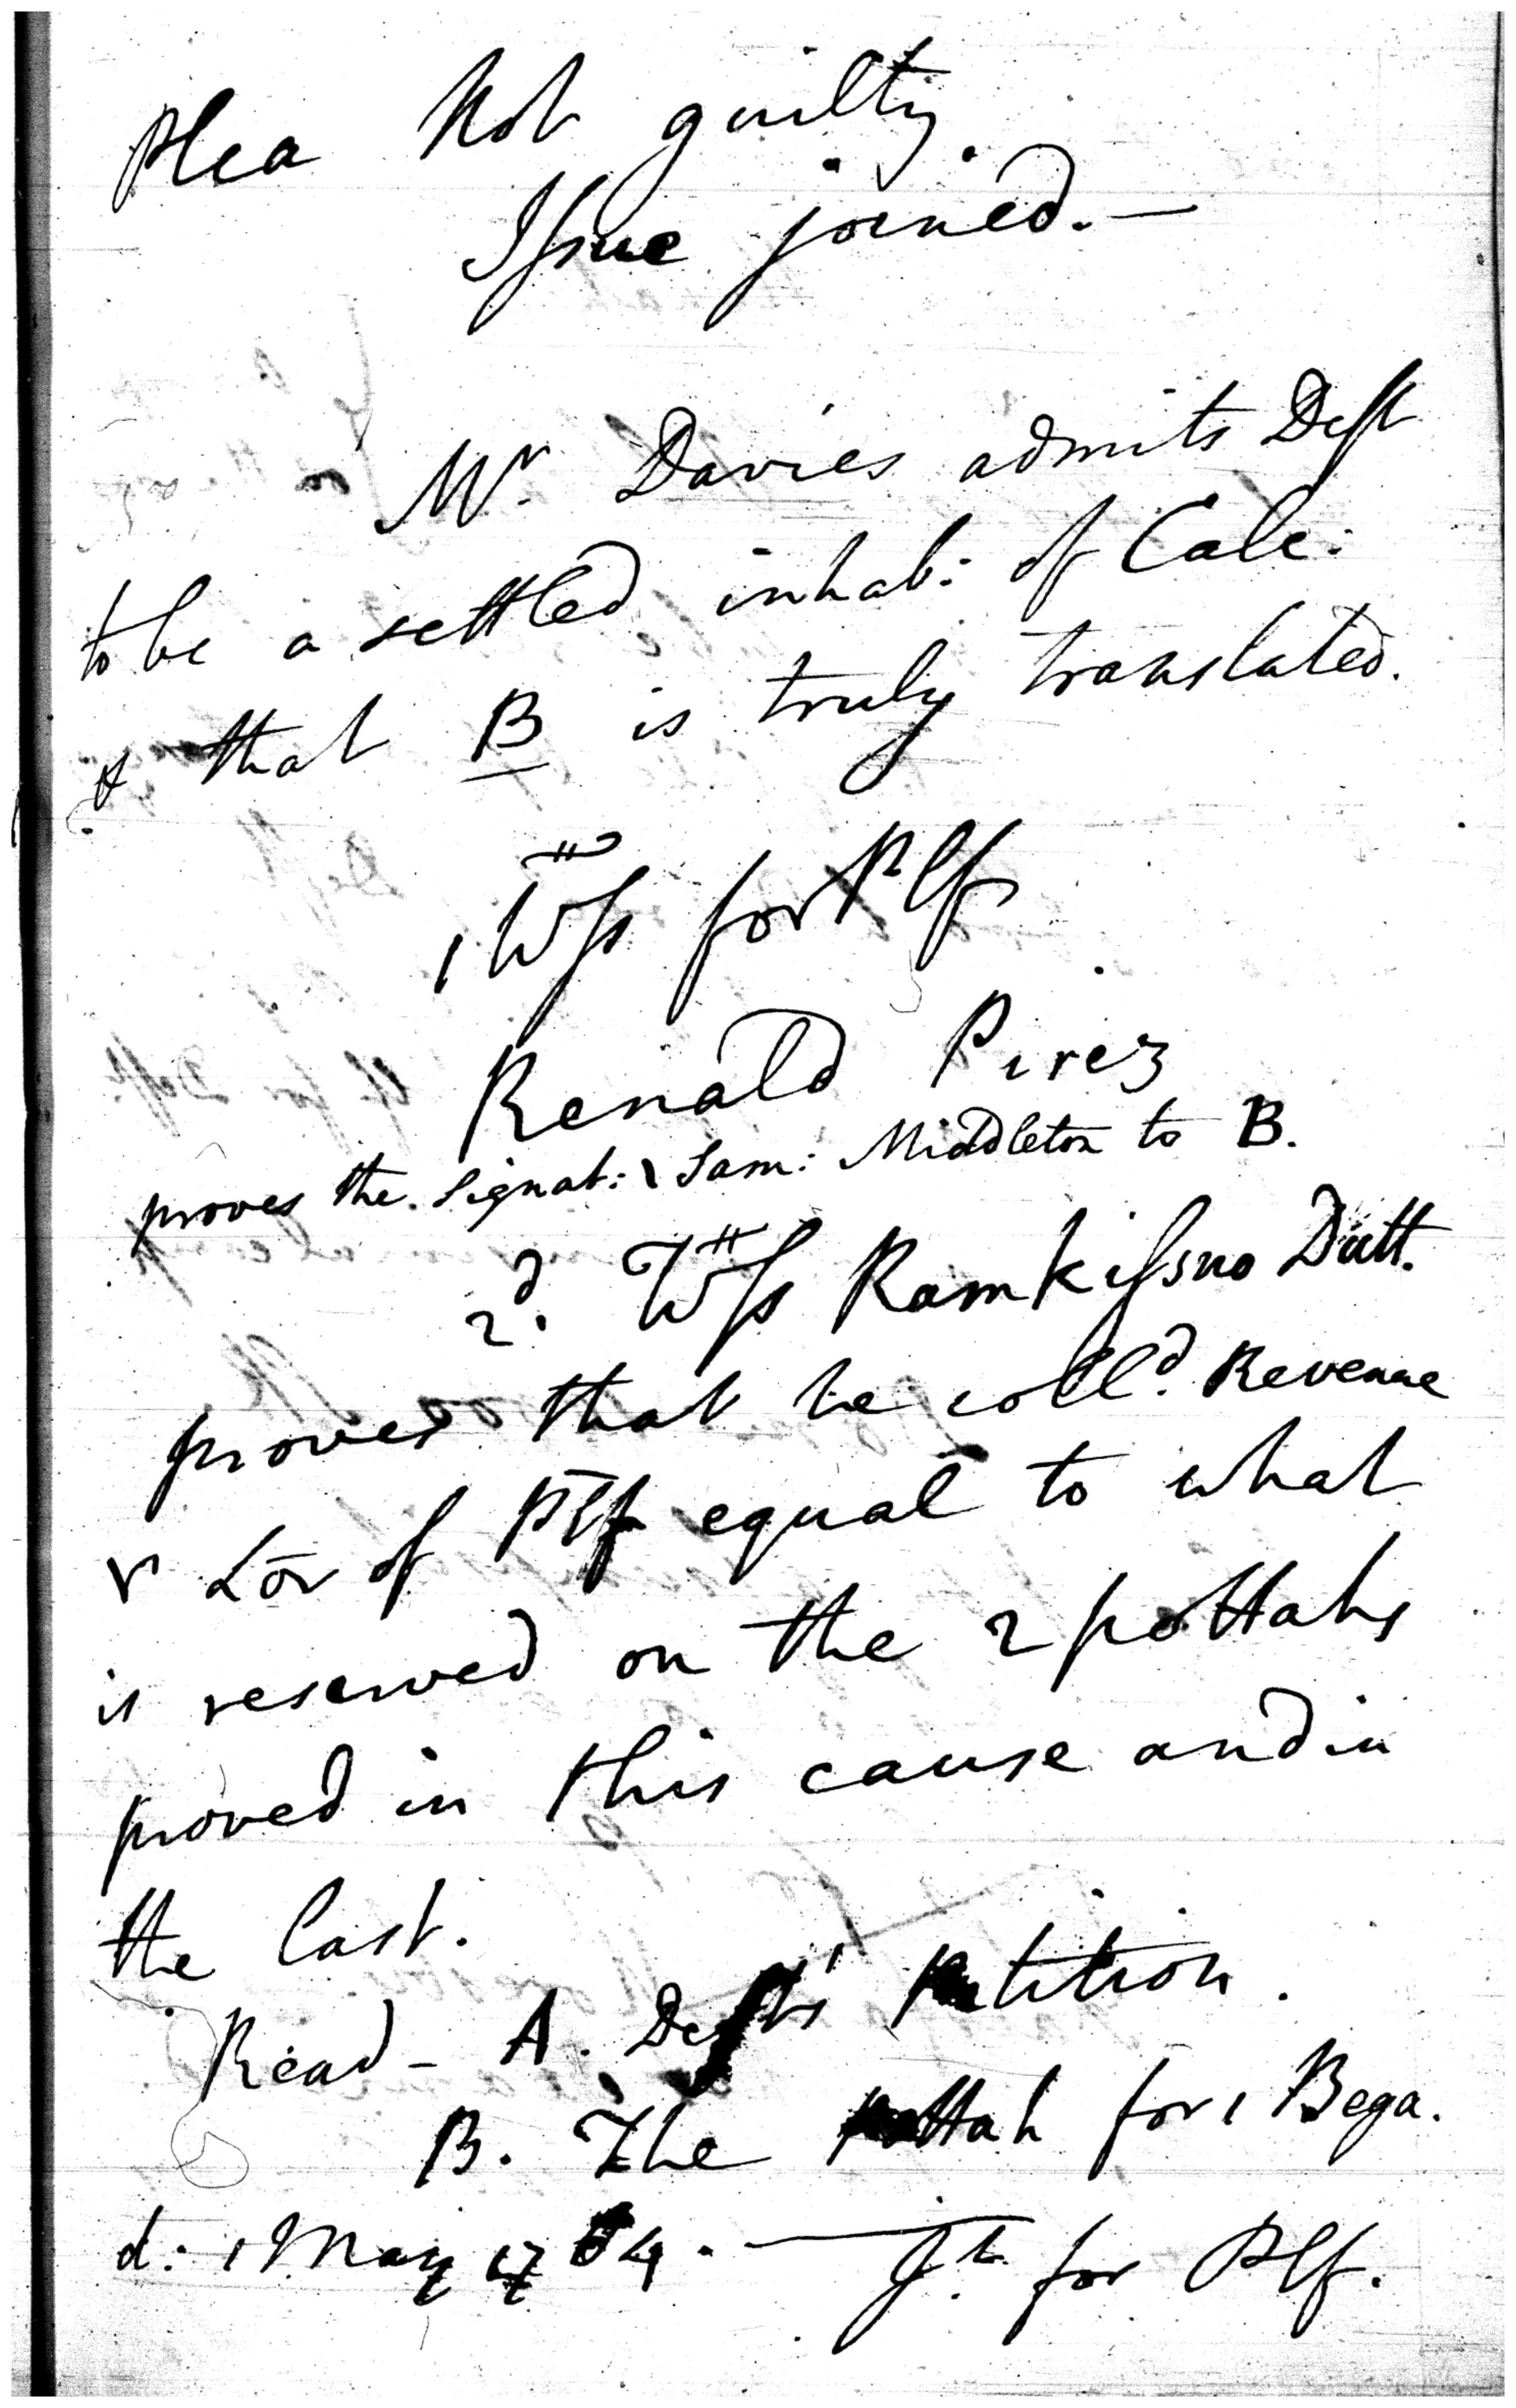 Plea Not guilty.
Issue joined. —
Mr. Davies admits Deft
to be a settled inhab: of Calc:
& that B is truly translated.
1 Wss for Plf
Renald Pirez
proves the Signat: Sam: Middleton to B.
2d. Wss Ramkissno Dutt.
proves that he coll'd. Revenue
of Plf equal to what
is reserved on the 2 pottahs
proved in this cause and in
the last.
Read - A. Defts' petition.
B. The pottah for 1 Bega.
d: 1 May 1764. — Jt. for Plf.